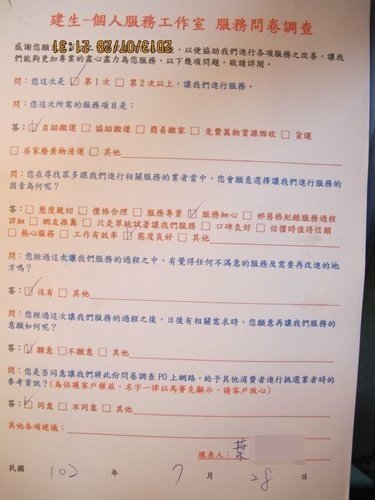 建生-個人服務工作室 服務問卷調查
2013/07/28 21:31
感謝您願 以便協助我們進行各項服務之改善，讓我
們能夠更加專業的盡心盡力為您服務，以下幾項問題，敬請詳閱。
問：您這次是 □ 第1次 □ 第2次以上，讓我們進行服務。
問：您這次所需的服務項目是：
答：□自助搬運 □協助搬運 □簡易搬家 □免費萬物資源回收 □貨運
□居家廢棄物清運 □其他
問：您在尋找眾多跟我們進行相關服務的業者當中，您會願意選擇讓我們進行服務的
因素為何呢？
答：□態度親切 □價格合理 □服務專業 □服務細心 □部落格紀錄服務過程
詳細 □網友推薦 □只是單純試著讓我們服務 □口碑良好 □估價時值得信賴
□熱心服務 □工作有效率 □態度良好 □其他
問：您經過這次讓我們服務的過程之中，有覺得任何不滿意的服務及需要再改進的地
方嗎？
答：□沒有 □其他
問：您經過這次讓我們服務的過程之後，日後有相關需求時，您願意再讓我們服務的
意願如何呢？
答：□願意 □不願意 □其他
問：您是否同意讓我們將此份問卷調查PO上網路，給予其他消費者進行挑選業者時的
參考資訊？(為保護客戶權益，名字一律以馬賽克顯示，請客戶放心)
答：□同意 □不同意 □其他
其他各項建議：
填表人：葉
民國 102 年 7 月 28 日